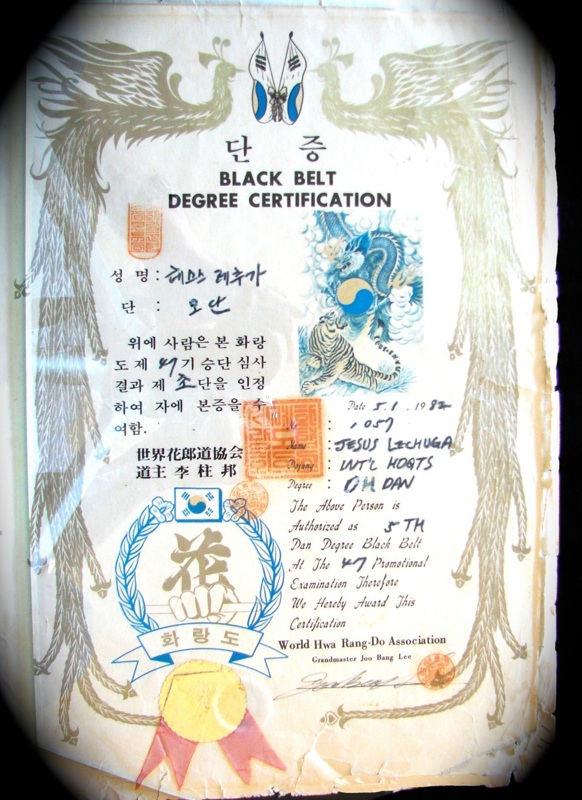 단 증
BLACK BELT
DEGREE CERTIFICATION
성 명 :
단 : 오 단
위에 사람은 본 화랑
도 제 47 기 승단 심사
결과 제 단을 인정
하여 자에 본증을 수
여함.
世界花郎道協会
道主 李柱邦
Date 5.1.1982
No : 057
Name : JESUS LECHUGA
Dojang : INT'L HDQTS
Degree : OH DAN
The Above Person is
Authorized as 5TH
Dan Degree Black Belt
At The 47 Promotional
Examination Therefore
We Hereby Award This
Certification
World Hwa Rang-Do Association
Grandmaster Joo Bang Lee
花
화랑도